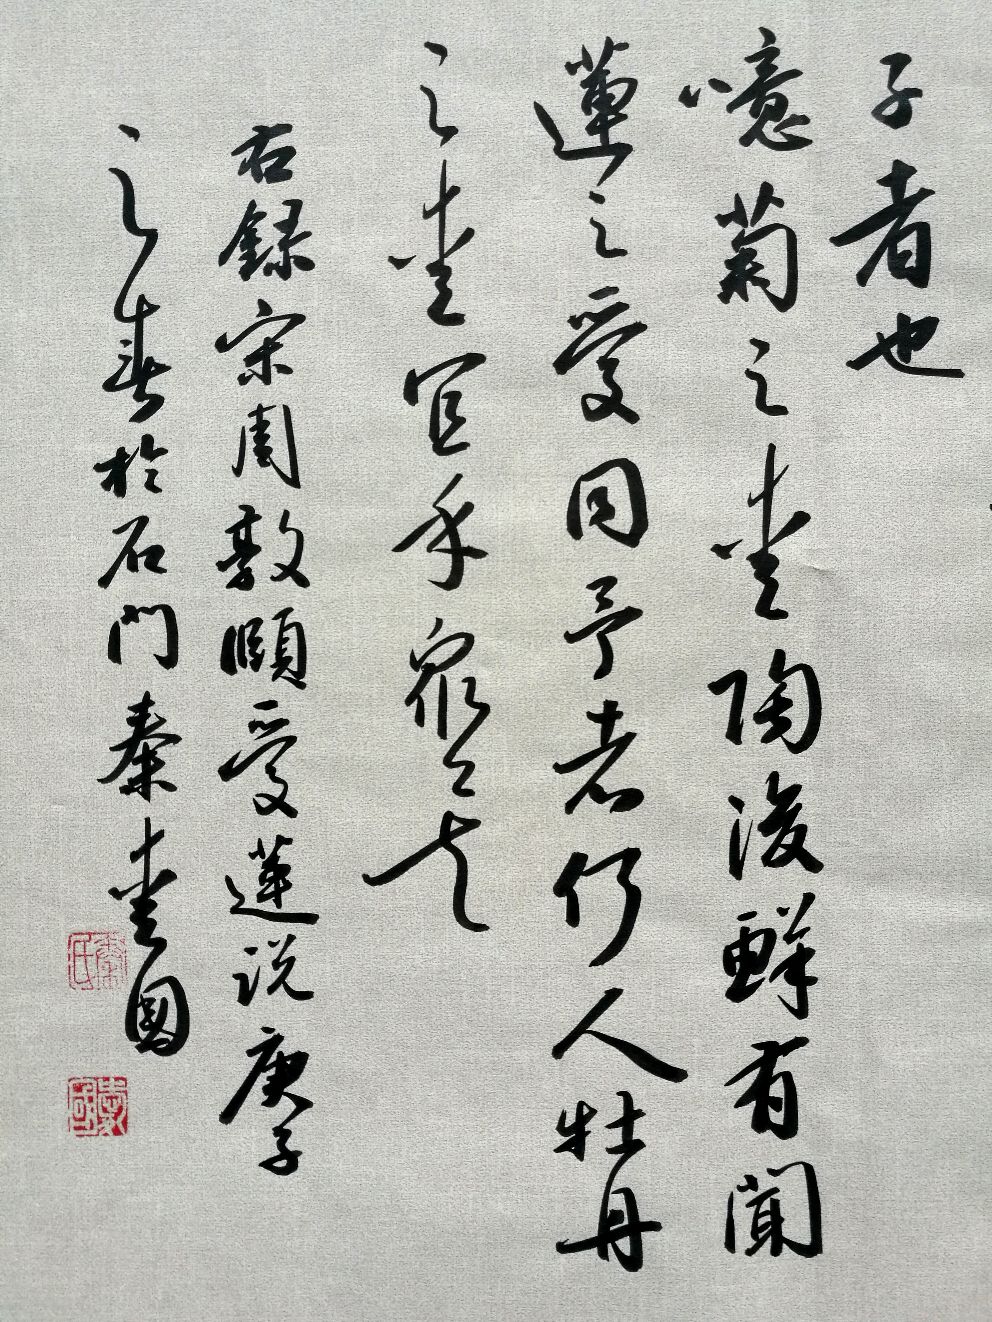 子者也
噫菊之愛陶後鮮有聞
蓮之愛同予者何人牡丹
之愛宜乎眾矣
右録宋周敦頤愛蓮説庚子
之春於石門秦愛國
秦氏
愛國